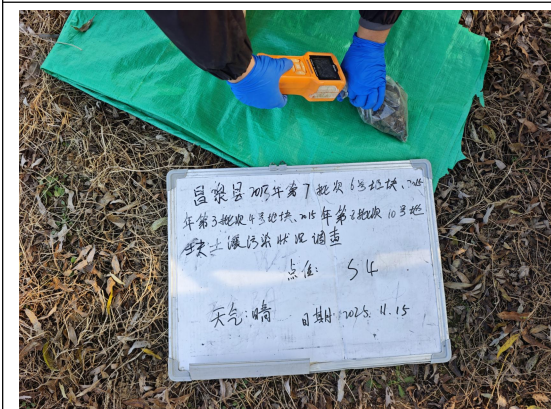 昌梁县2015年第7批次6号地块、2025
年第3批次4号地块、2015年第8批次10号地
块土壤污染状况调查
点位: S4
天气:晴 日期:2025.11.15